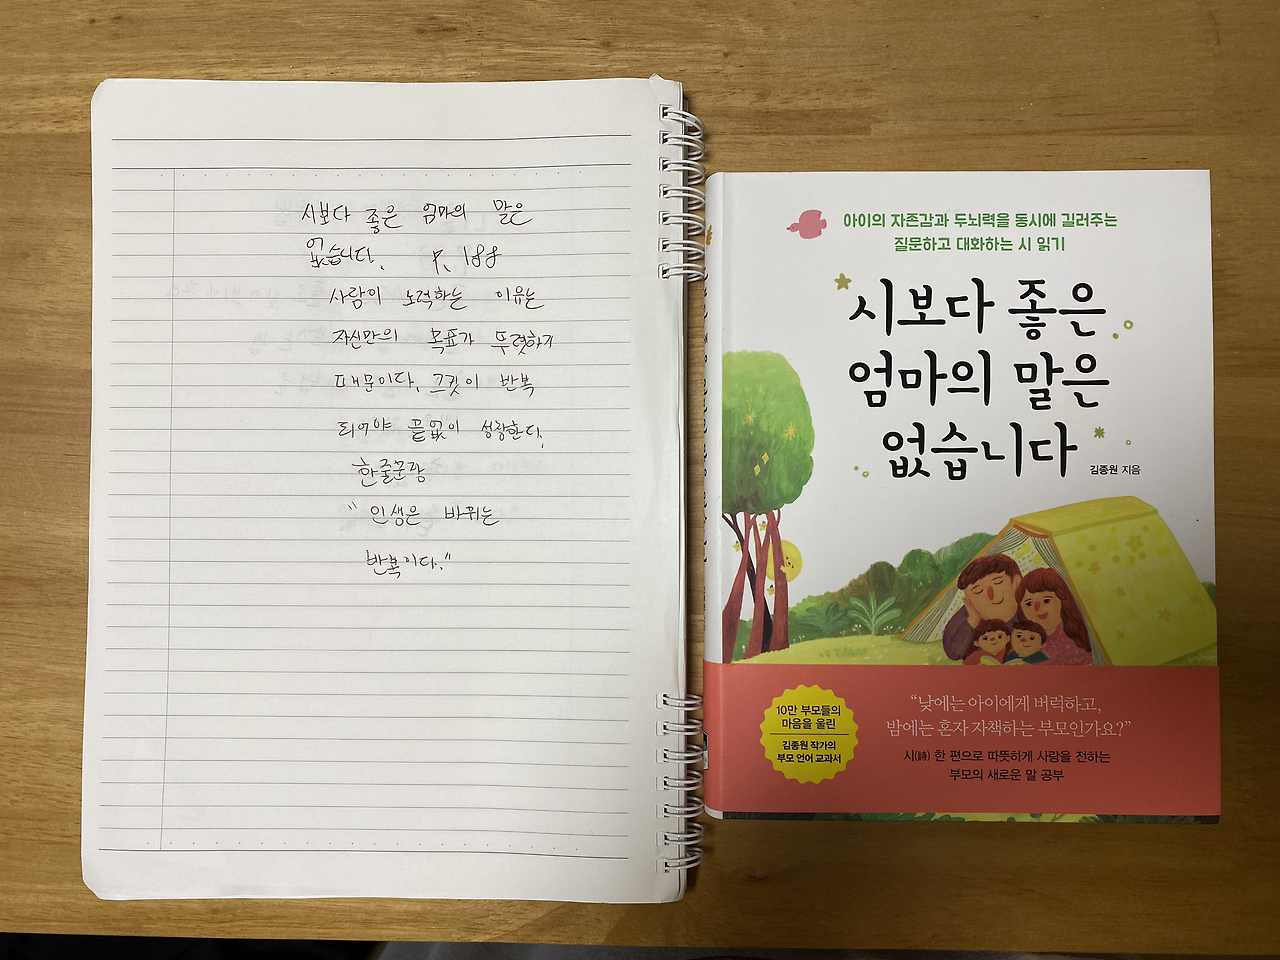 시보다 좋은 엄마의 말은
없습니다. P. 188
사람이 노력하는 이유는
자신만의 목표가 뚜렷하기
때문이다. 그것이 반복
되어야 끝없이 성장한다.
한줄문장
"인생은 바뀌는
반복이다."
아이의 자존감과 두뇌력을 동시에 길러주는
질문하고 대화하는 시 읽기
시보다 좋은
엄마의 말은
없습니다
김종원 지음
10만 부모들의
마음을 울린
김종원 작가의
부모 언어 교과서
“낮에는 아이에게 버럭하고,
밤에는 혼자 자책하는 부모인가요?”
시(詩) 한 편으로 따뜻하게 사랑을 전하는
부모의 새로운 말 공부